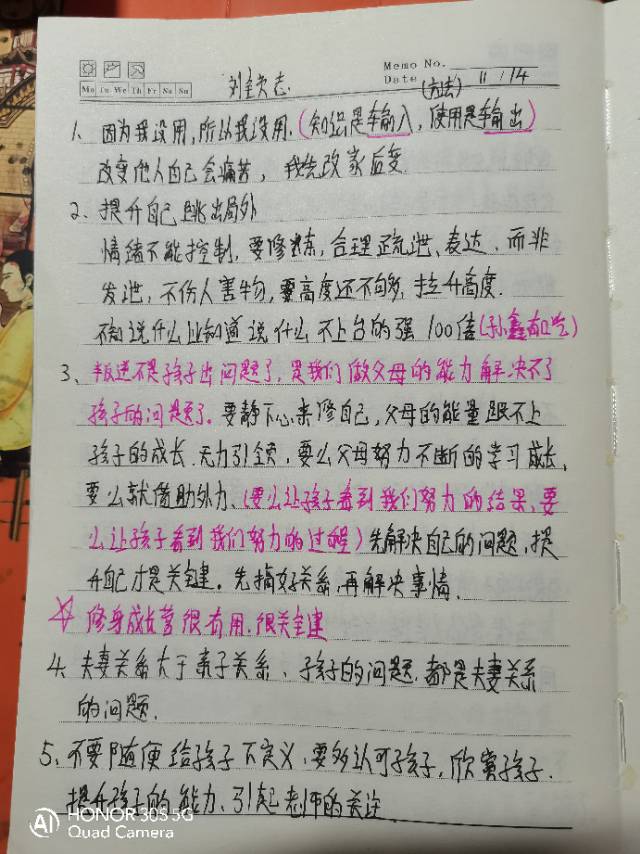 Memo No.
Mo Tu We Th Fr Sa Su
Date 11/14
(方法)
1、因为我没用,所以我没用.(知识是输入,使用是输出)
改变他人自己会痛苦,我先改态度
2、提升自己跳出局外
情绪不能控制,要修炼,合理疏泄、表达.而非
发泄,不伤人害物,要高度还不够,拉升高度.
不知说什么比知道说什么不上台的强100倍(孙鑫有口吃)
3、叛逆不是孩子出问题了,是我们做父母的能力解决不了
孩子的问题了.要静下心来修自己,父母的能量跟不上
孩子的成长.无力引领,要么父母努力不断的学习成长,
要么就借助外力、(要么让孩子看到我们努力的结果,要
么让孩子看到我们努力的过程)先解决自己的问题,提
升自己才是关键.先搞好关系,再解决事情.
修身成长营很有用.很关键
4、夫妻关系大于亲子关系、孩子的问题.都是夫妻关系
的问题.
5、不要随便给孩子下定义.要多认可孩子,欣赏孩子.
提升孩子的能力、引起老师的关注
AI HONOR 30S 5G
Quad Camera